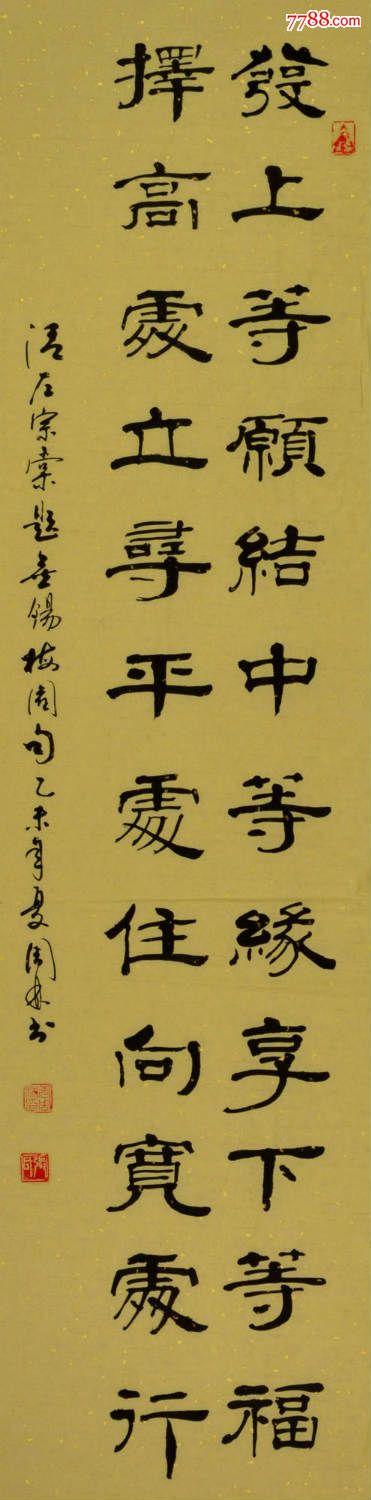 7788.com
發上等願結中等緣享下等福
擇高處立尋平處住向寬處行
清左宗棠題無錫梅園句乙未年夏周林書